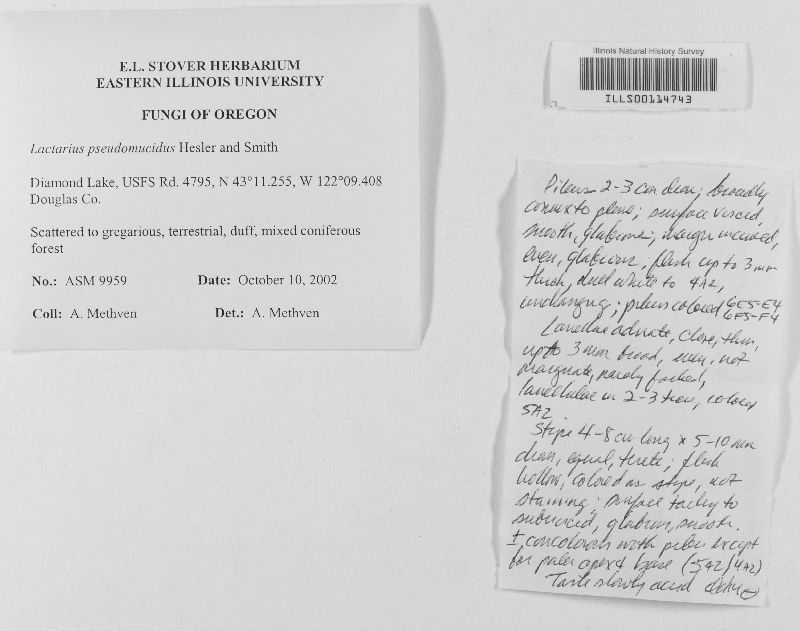 E.L. STOVER HERBARIUM
EASTERN ILLINOIS UNIVERSITY
FUNGI OF OREGON
Lactarius pseudomucidus Hesler and Smith
Diamond Lake, USFS Rd. 4795, N 43°11.255, W 122°09.408
Douglas Co.
Scattered to gregarious, terrestrial, duff, mixed coniferous
forest
No.: ASM 9959 Date: October 10, 2002
Coll: A. Methven Det.: A. Methven
Illinois Natural History Survey
ILLS00114743
Pileus 2-3 cm diam; broadly
convex to plane; surface viscid,
smooth, glabrous; margin incurved,
even, glabrous; flesh up to 3 mm
thick, dull white to 4A2,
unchanging; pileus colored 6E5-E4
6F5-F4
Lamellae adnate, close, thin,
up to 3 mm broad, even, not
marginate, rarely forked,
lamellulae in 2-3 tiers, colored
5A2
Stipe 4-8 cm long x 5-10 mm
diam, equal, terete; flesh
hollow, colored as stipe, not
staining; surface tacky to
subviscid, glabrous, smooth.
± concolorous with pileus except
for paler apex & base (5A2/4A2)
Taste slowly acrid